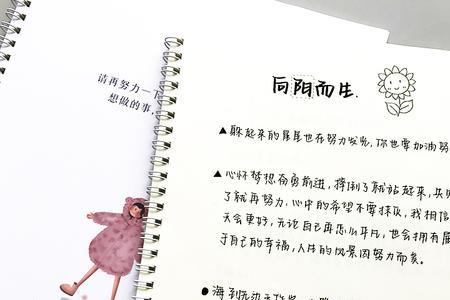 请再努力一下
想做的事,
向阳而生.
▲躲起来的星星也在努力发光,你也要加油努
▲心怀梦想奋勇前进,摔倒了就站起来,失
了就再努力.心中的希望不要抹灭,我相信
天会更好,无论自己再怎么平凡,也会拥有属
于自己的幸福,人生的风景因努力而美。